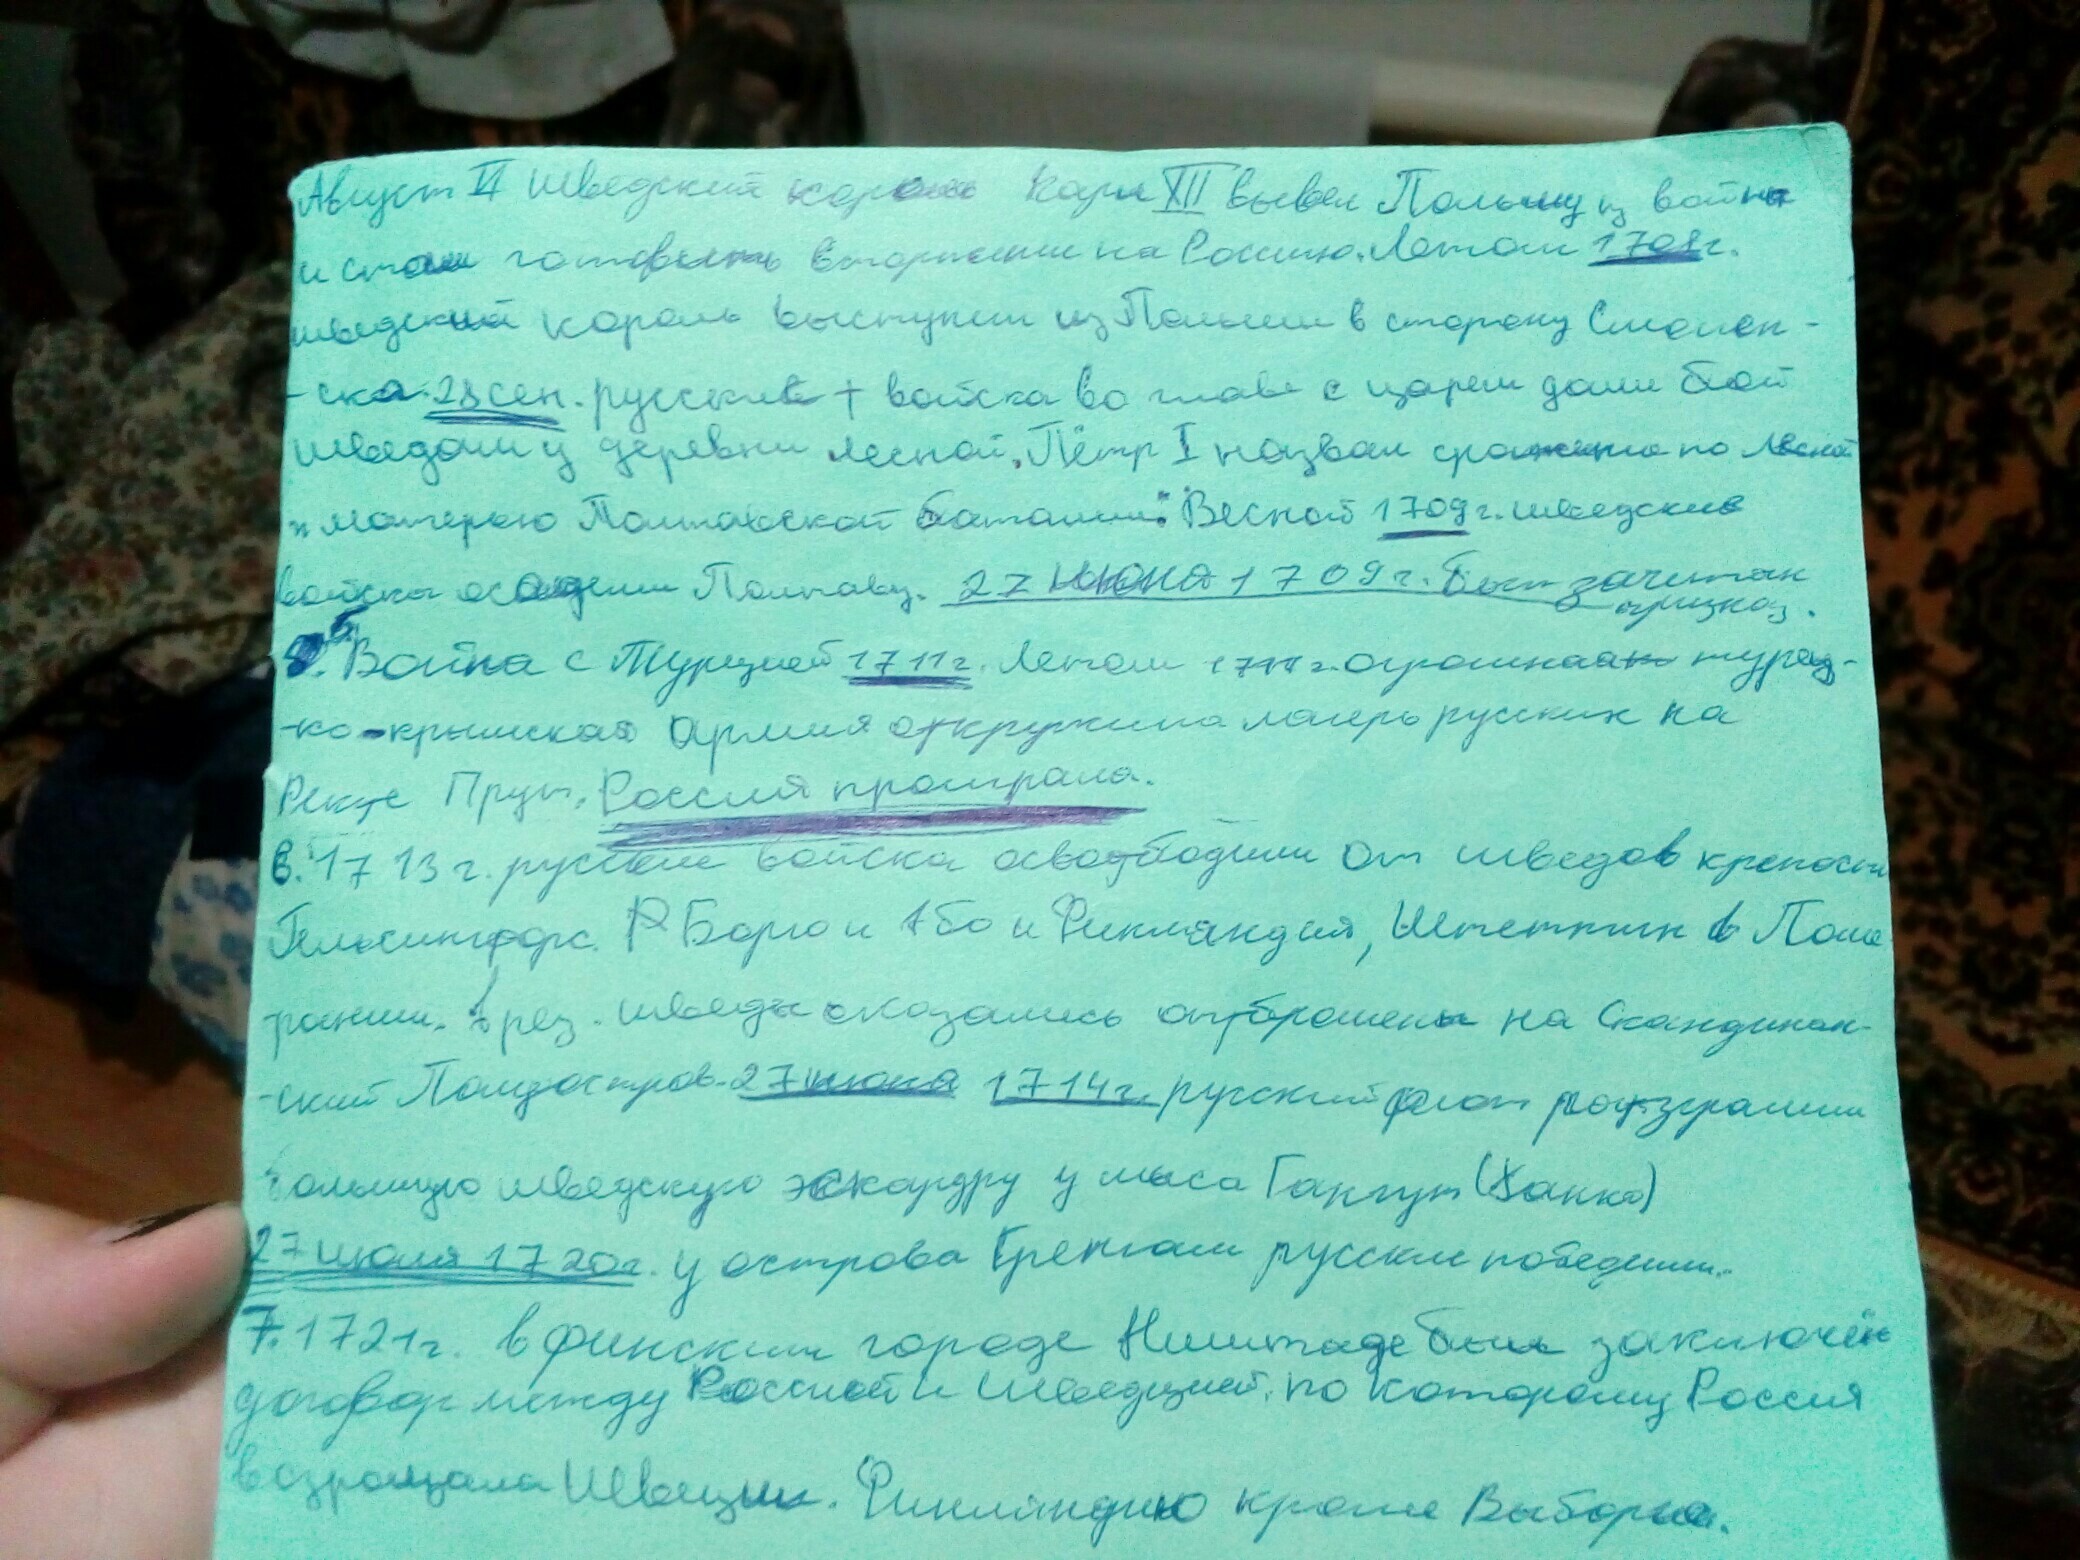 Август II шведский король Карл XII вывел Польшу из войны
и стал готовить вторжение на Россию. Летом 1708г.
шведский король выступил из Польши в сторону Смолен-
-ска. 28 сен. русские + войска во главе с царем дали бой
шведам у деревни Лесной. Пётр I назвал сражение по Лесной
"матерью Полтавской баталии". Весной 1709г. шведские
войска осадили Полтаву. 27 июня 1709г. был зачитан
приказ.
5. Война с Турцией 1711г. Летом 1711г. огромная турец-
-ко-крымская армия окружила лагерь русских на
Реке Прут. Россия проиграла.
6. 1713г. русские войска освободили от шведов крепости
Гельсингфорс. Борго и Або и Финляндия, Штеттин в Поме-
рании. В рез. шведы оказались отброшены на Скандинав-
-ский Полуостров. 27 июня 1714г. русский флот разгромили
большую шведскую эскадру у мыса Гангут (Ханко)
27 июля 1720г. у острова Гренгам русские победили.
7. 1721г. в финском городе Ништаде был заключён
договор между Россией и Швецией, по которому Россия
возвращала Швеции. Финляндию кроме Выборга.